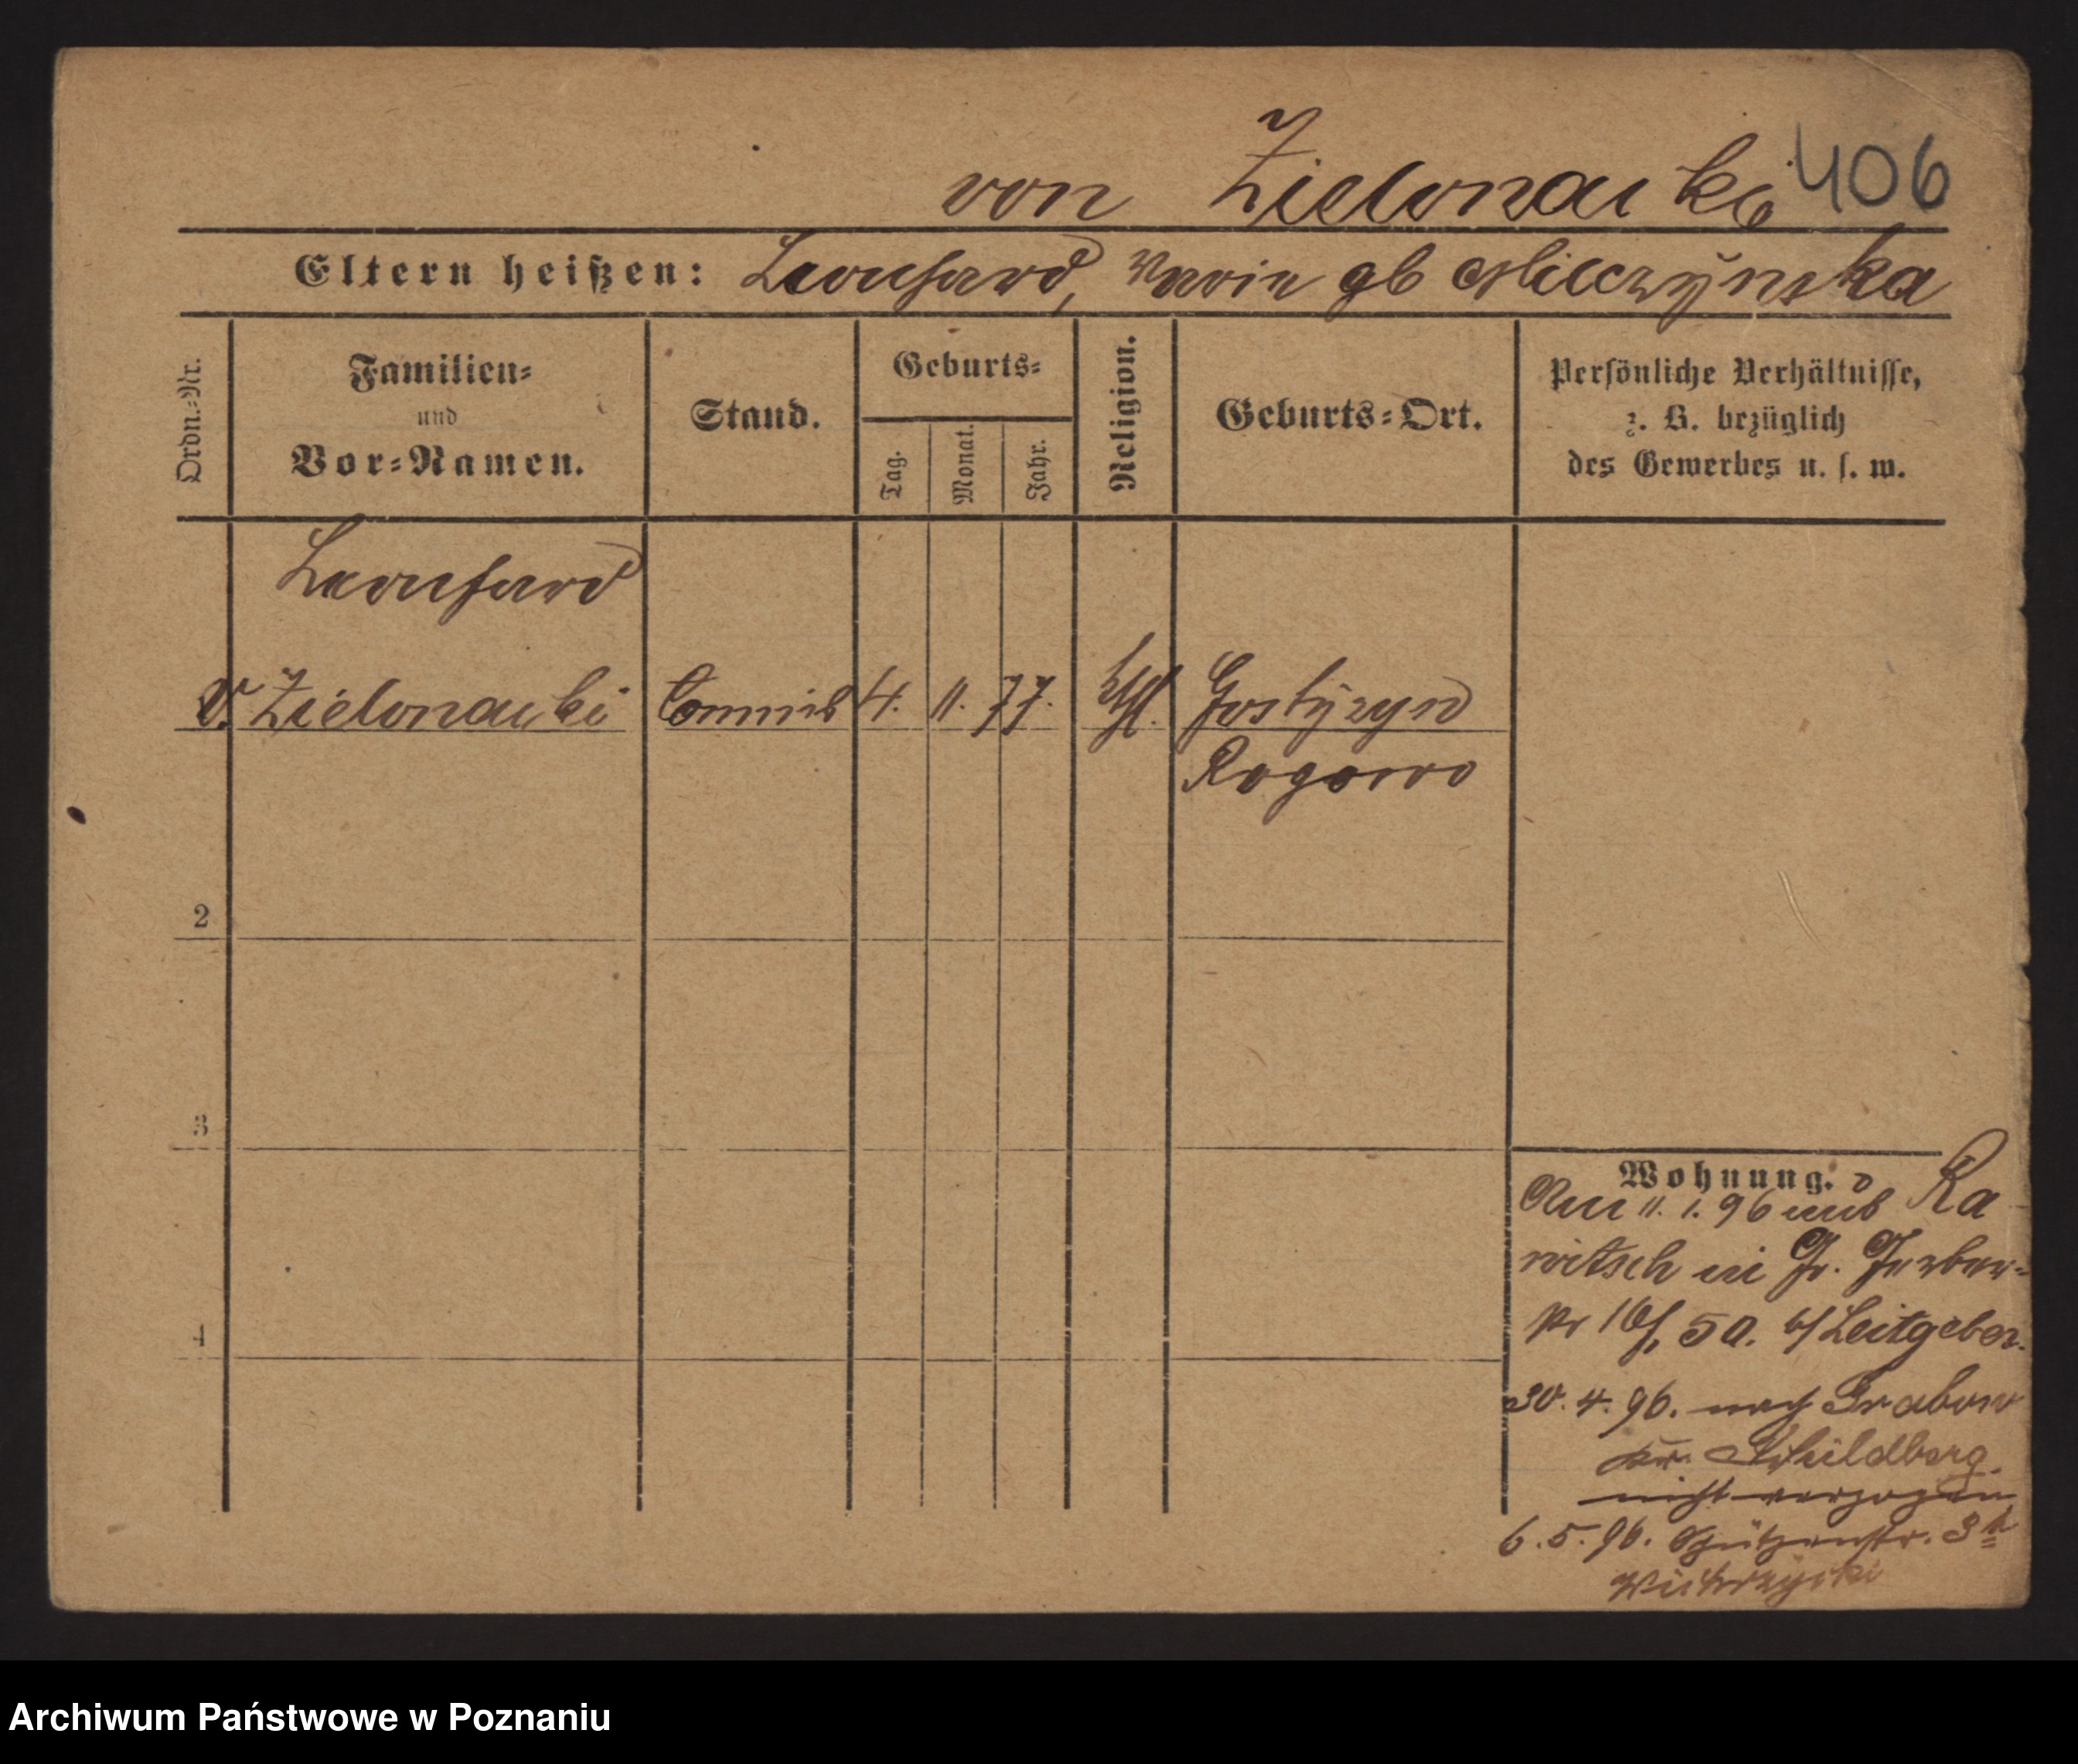 406
von Zielonacki
Eltern heißen: Leonhard, Maria gb Milczynska
Ordn.-Nr.
Familien-
und
Vor-Namen.
Stand.
Geburts-
Tag.
Monat.
Jahr.
Religion.
Geburts-Ort.
Persönliche Verhältnisse,
z. B. bezüglich
des Gewerbes u. s. w.
Leonhard
v. Zielonacki Commis 4. 11. 77. kth. Gostyzyn
Rogowo
2
3
4
Wohnung.
Am 11. 1. 96 aus Ra
witsch in Gr. Gerber-
50. b/ Leitgeber.
30. 4. 96. nach Grabow
Kr. Schildberg
nicht verzogen
6. 5. 96. Schützenstr. 3
Archiwum Państwowe w Poznaniu